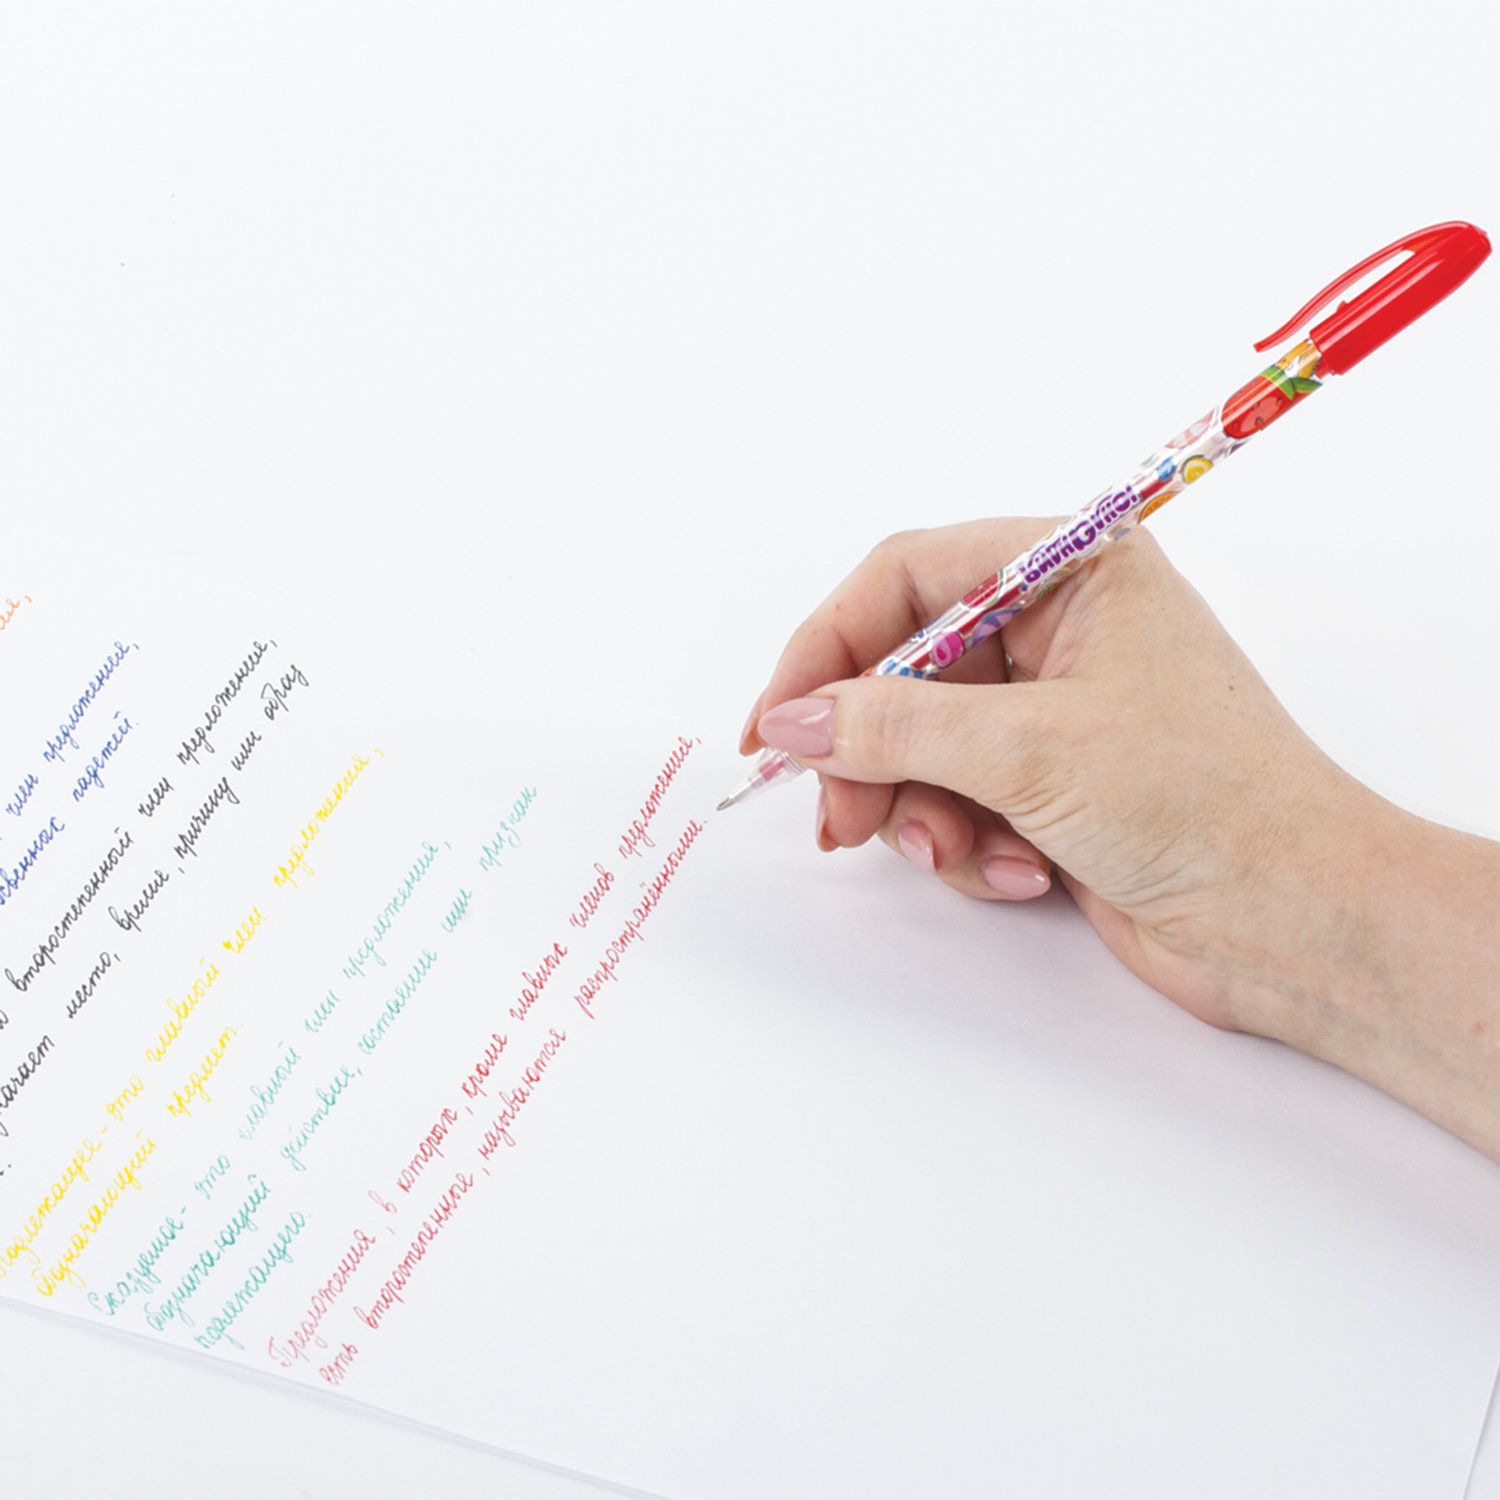 ия,
член предложения,
косвенных падежей.
второстепенный член предложения,
обозначает место, время, причину или образ
Подлежащее - это главный член предложения,
обозначающий предмет.
Сказуемое - это главный член предложения,
обозначающий действие, состояние или признак
подлежащего.
Предложения, в которых, кроме главных членов предложения,
есть второстепенные, называются распространёнными.
ЮНЛАНДИЯ